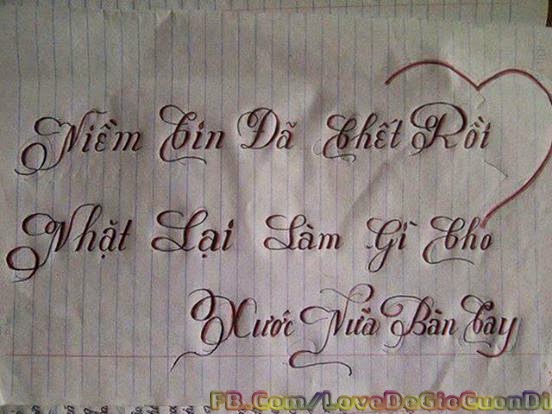 Niềm Tin Đã Chết Rồi
Nhặt Lại Làm Gì Cho
Xước Nữa Bàn Tay
FB.Com/LoveDeGioCuonDi